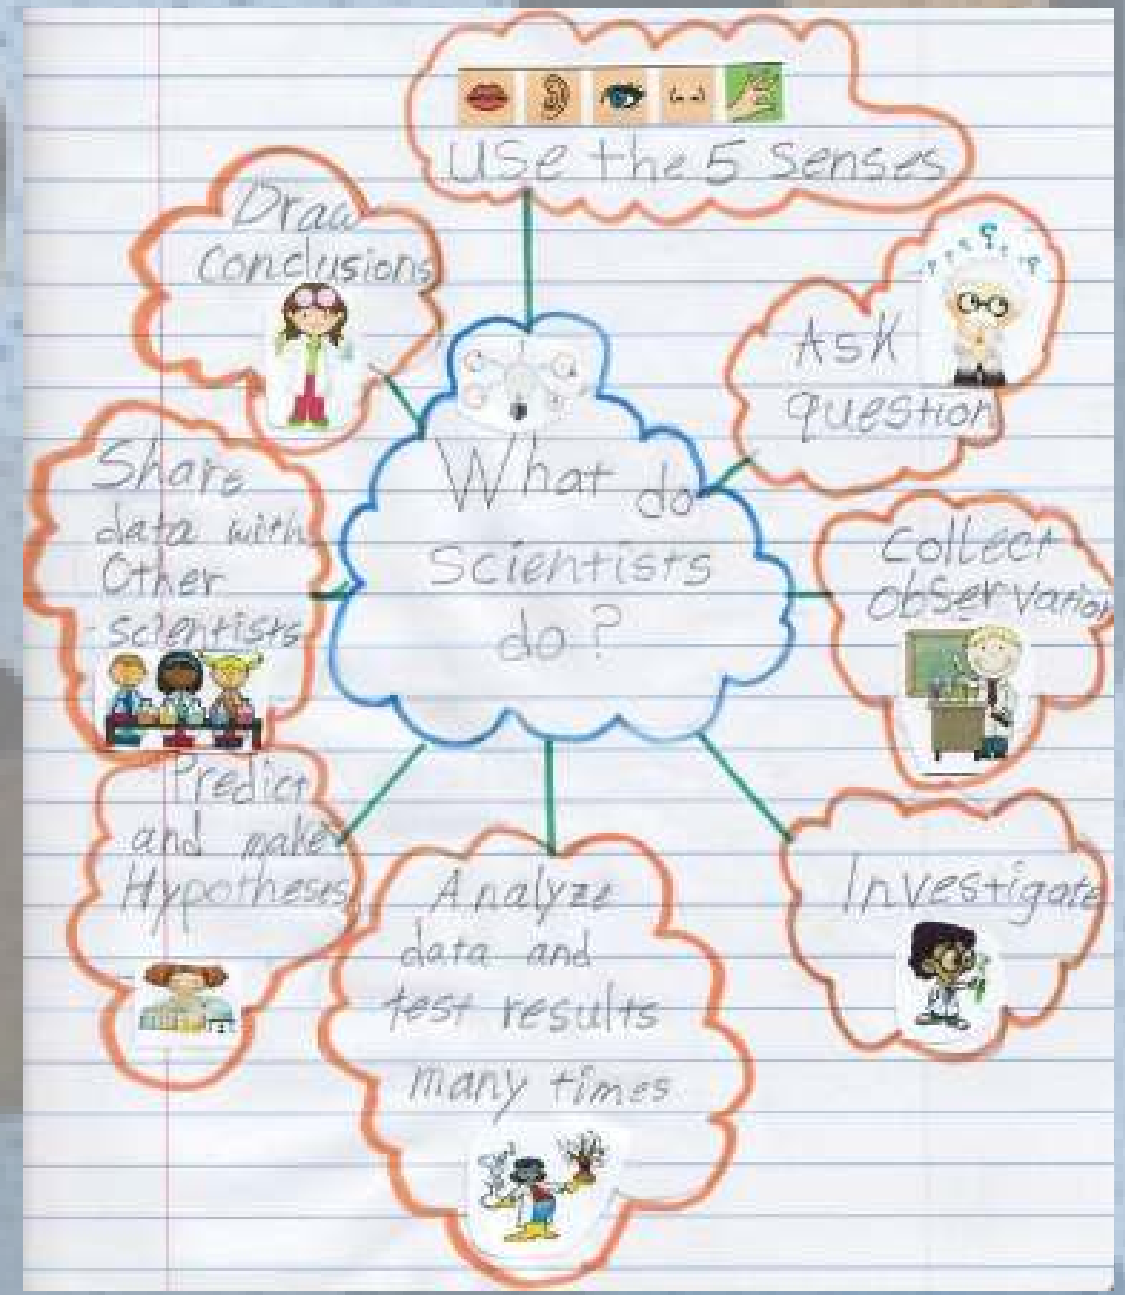 Use the 5 Senses
Draw
Conclusions
Ask
question
What do
Scientists
do?
Share
data with
Other
scientists
Collect
observation
Predict
and make
Hypotheses
Analyze
data and
test results
many times
Investigate